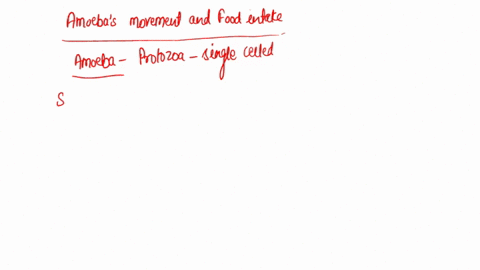 Amoeba's movement and Food intake
Amoeba - Protozoa - single celled
S